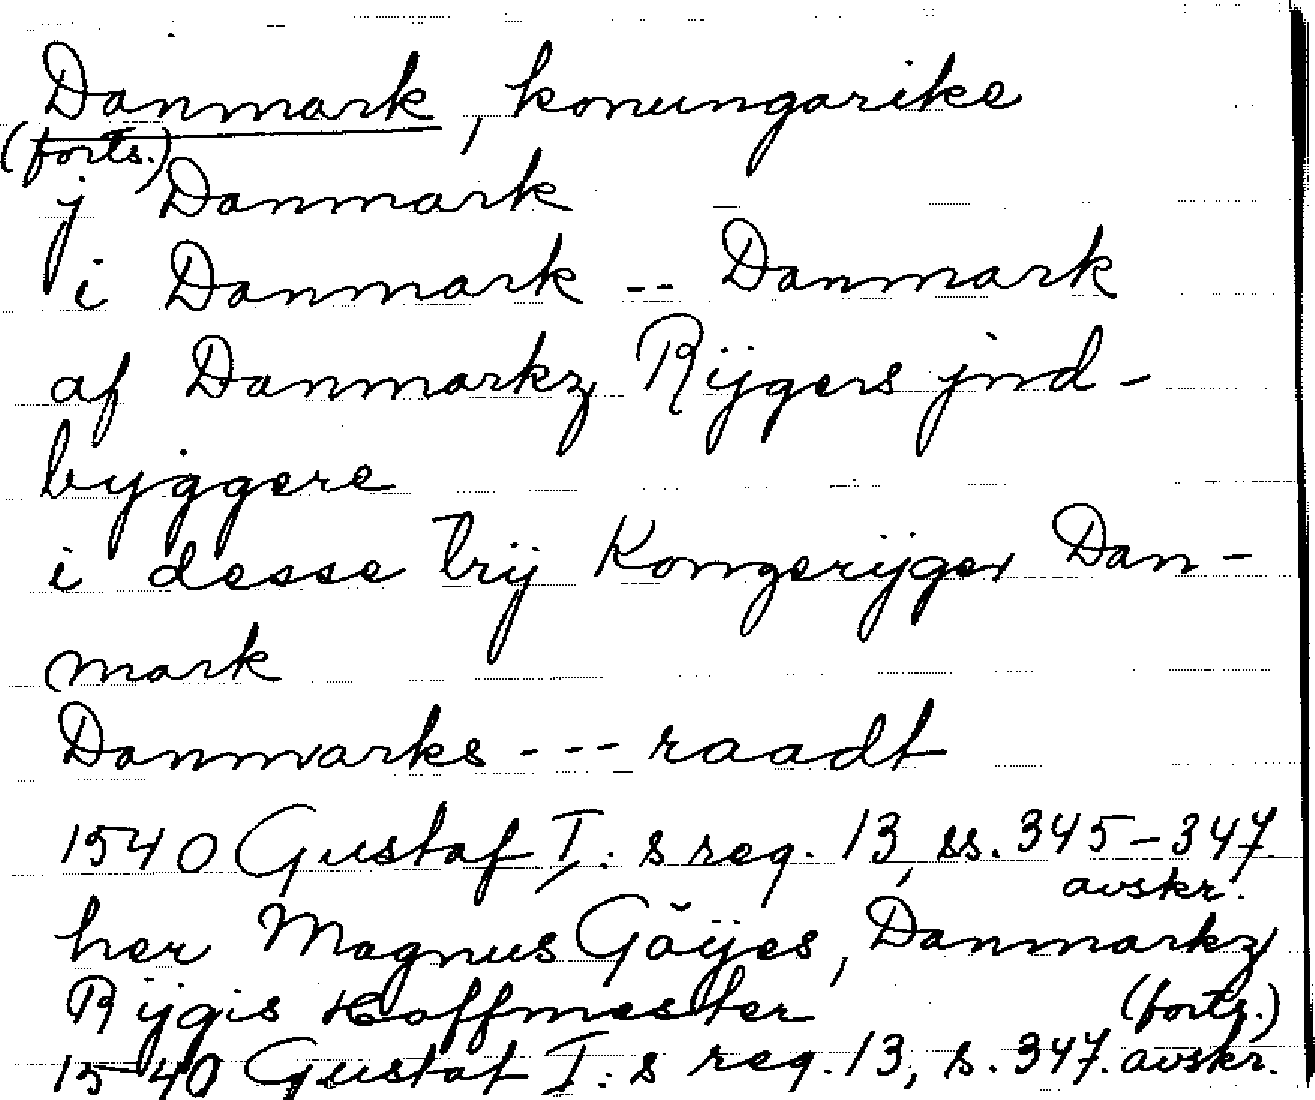 Danmark, konungarike
(forts.)
j Danmark
i Danmark -- Danmark
af Danmarkz Rijgers jnd-
byggere
i desse trij Kongerijger Dan-
mark
Danmarks --- raadt
1540 Gustaf I:s reg. 13, ss. 345-347.
avskr.
her Magnus Göijes, Danmarkz
Rijgis Hoffmester (forts.)
1540 Gustaf I:s reg. 13, s. 347. avskr.